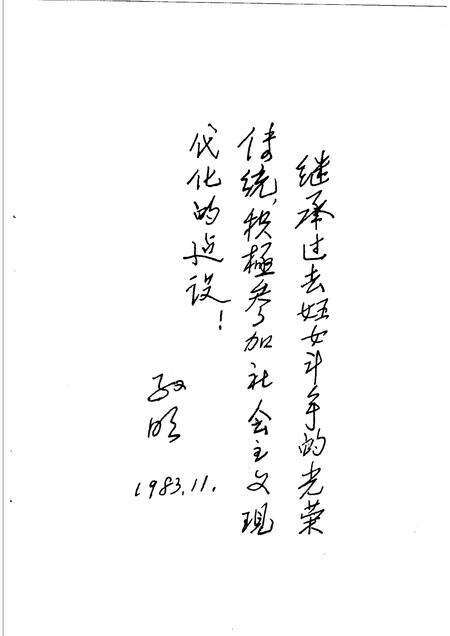 继承过去妇女斗争的光荣
传统,积极参加社会主义现
代化的建设!
明
1983.11.